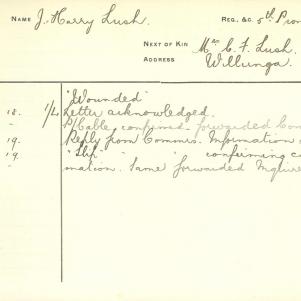 NAME J. Harry Lush. REG., &C. 5th Pion
NEXT OF KIN Mrs C. F. Lush.
ADDRESS Willunga.
"Wounded"
18. Letter acknowledged.
" P/Cable confirmed. forwarded Com
19. Reply from Commis. Information
19. "Slip" " " confirming ca
mation. Same forwarded Inquire